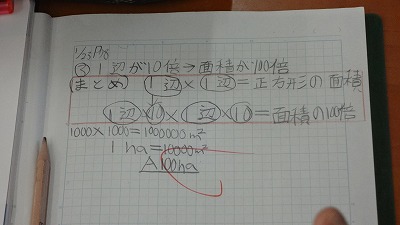 1/23 P78
② 1辺が10倍→面積が100倍
(まとめ) 1辺×1辺=正方形の面積
1辺×10×1辺×10=面積の100倍
1000×1000=1000000m²
1ha=10000m²
A 100ha